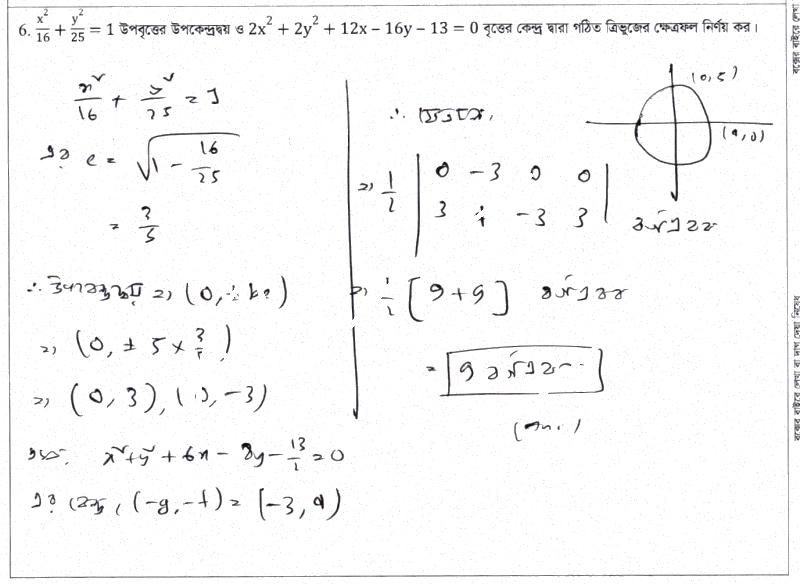 6. x²/16 + y²/25 = 1 উপবৃত্তের উপকেন্দ্রদ্বয় ও 2x² + 2y² + 12x − 16y − 13 = 0 বৃত্তের কেন্দ্র দ্বারা গঠিত ত্রিভুজের ক্ষেত্রফল নির্ণয় কর।
x²/16 + y²/25 = 1
এর e = √(1 − 16/25)
= 3/5
∴ উপকেন্দ্রদ্বয় ⇒ (0, ± be)
⇒ (0, ± 5 × 3/5)
⇒ (0, 3), (0, −3)
x² + y² + 6x − 8y − 13/2 = 0
এর কেন্দ্র, (−g, −f) = (−3, 4)
(0, 5)
(4, 0)
∴ ক্ষেত্রফল,
⇒ 1/2 | 0 −3 0 0 |
| 3 4 −3 3 |
বর্গএকক
⇒ 1/2 [9 + 9] বর্গএকক
= 9 বর্গএকক
(Ans.)